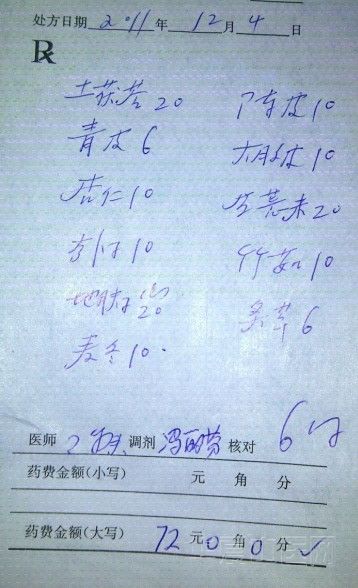 处方日期 2011 年 12 月 4 日
R
土茯苓 20 广陈皮 10
青皮 6 大腹皮 10
杏仁 10 生薏米 20
10 竹茹 10
地肤子 20 炙草 6
麦冬 10
医师 调剂 冯丽芬 核对 6付
药费金额(小写) 元 角 分
药费金额(大写) 72 元 0 角 0 分 ✓